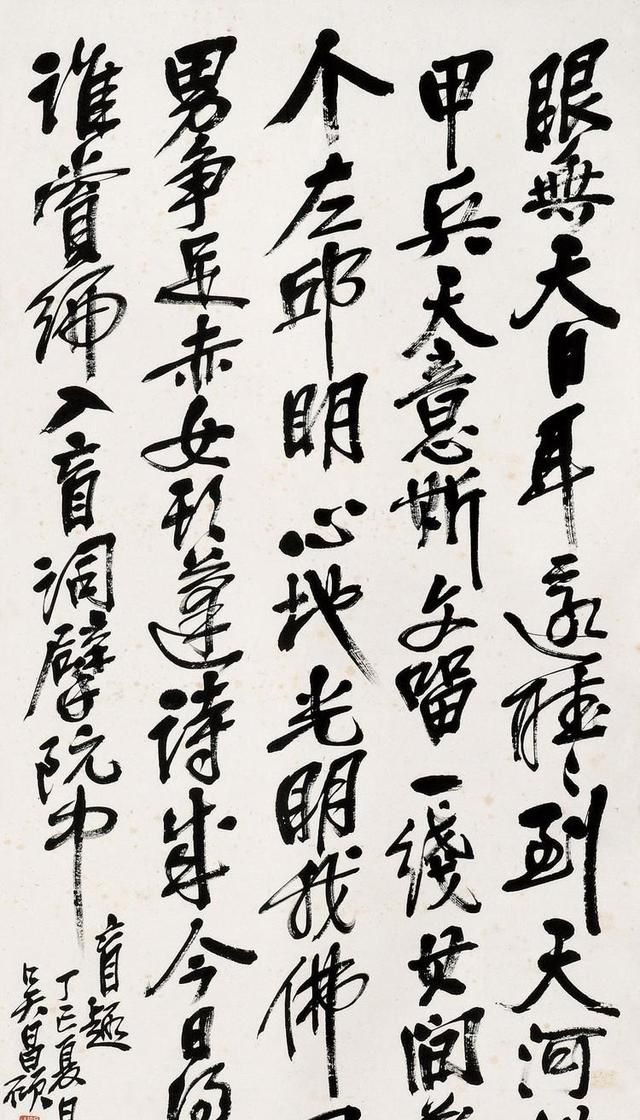 眼無天日耳還聽〻到天河
甲兵天意斯文留一綫世間
个左邱明心地光明我佛
男争足赤女形蓬詩成今日
誰賞編入盲詞擘阮中
盲趣
丁巳夏日
吳昌碩